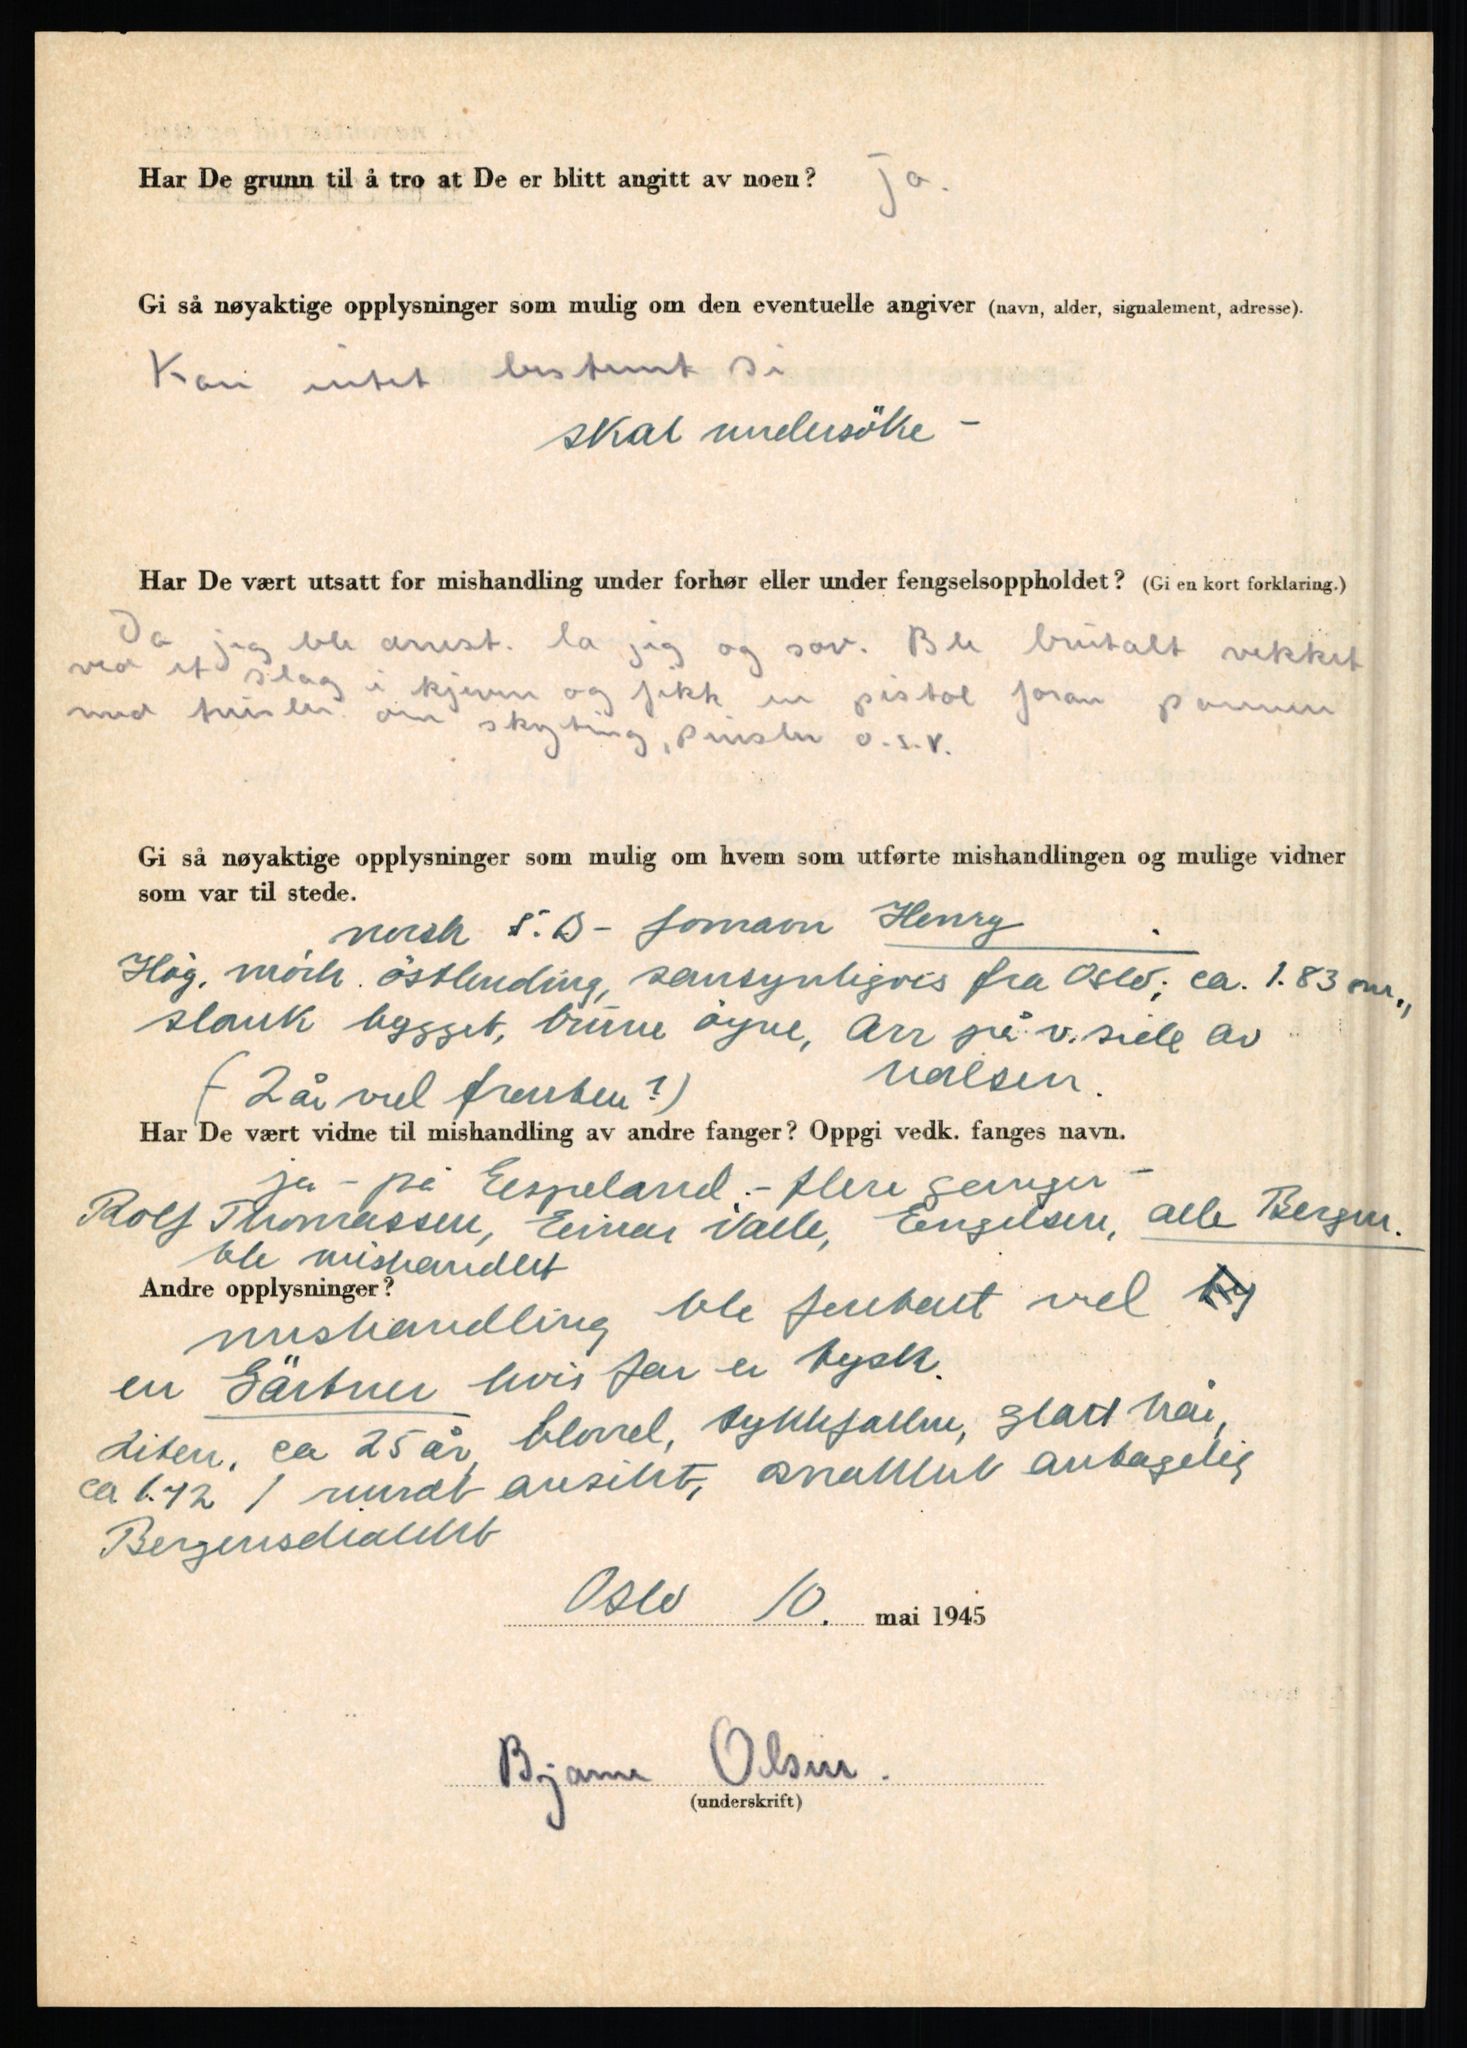 Har De grunn til å tro at De er blitt angitt av noen? Ja.
Gi så nøyaktige opplysninger som mulig om den eventuelle angiver (navn, alder, signalement, adresse).
Kan intet bestemt si
skal undersöke -
Har De vært utsatt for mishandling under forhør eller under fengselsoppholdet? (Gi en kort forklaring.)
Da jeg ble arrest. la jeg og sov. Ble brutalt vekket
ved et slag i kjeven og fikk en pistol foran pannen
med trusler om skyting, pinsler o.s.v.
Gi så nøyaktige opplysninger som mulig om hvem som utførte mishandlingen og mulige vidner
som var til stede.
norsk S.D - fornavn Henry
Høg, mörk östlending, sansynligvis fra Oslo; ca. 1.83 m.,
slank bygget, brune öyne, Arr på v. side av
halsen.
(- 2 år ved fronten?)
Har De vært vidne til mishandling av andre fanger? Oppgi vedk. fanges navn.
ja - på Espeland - flere ganger -
Rolf Thomassen, Einar Valle, Engelsen, alle Bergen.
ble mishandlet
Andre opplysninger?
mishandling ble foretatt ved
en Gärtner hvis far er tysk.
Liten, ca 25 år, blond, tykkfallen, glatt hår,
ca 1.72 / rundt ansikt, snakket antagelig
Bergensdialekt
Oslo 10. mai 1945
Bjarne Olsen.
(underskrift)